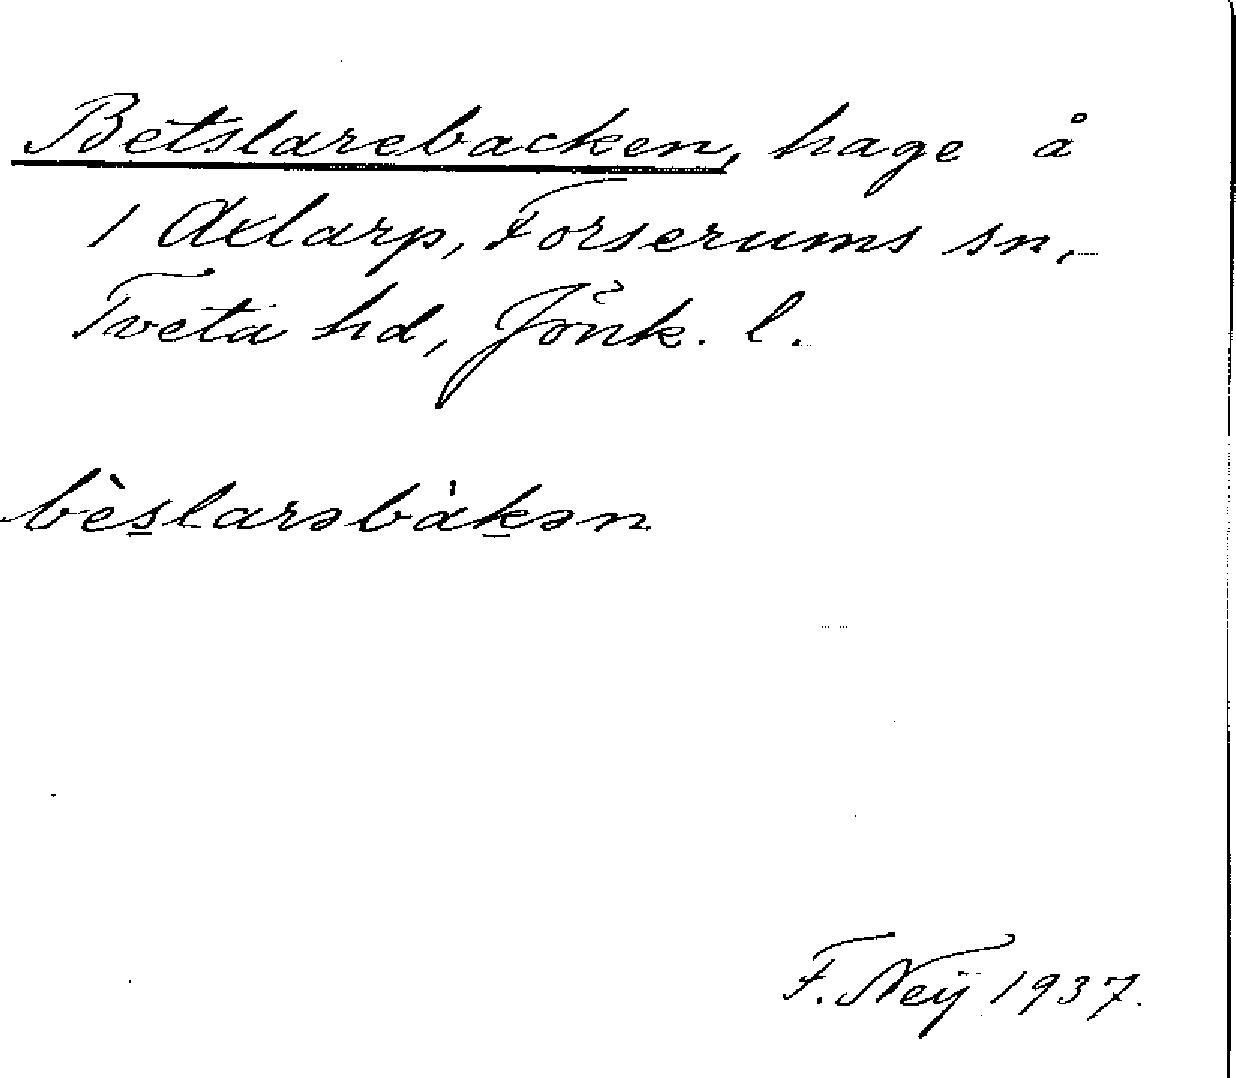 Betslarebacken, hage å
1 Axlarp, Forserums sn,
Tveta hd, Jönk. l.
bès̲larəbàk̲ən
F. Neij 1937.